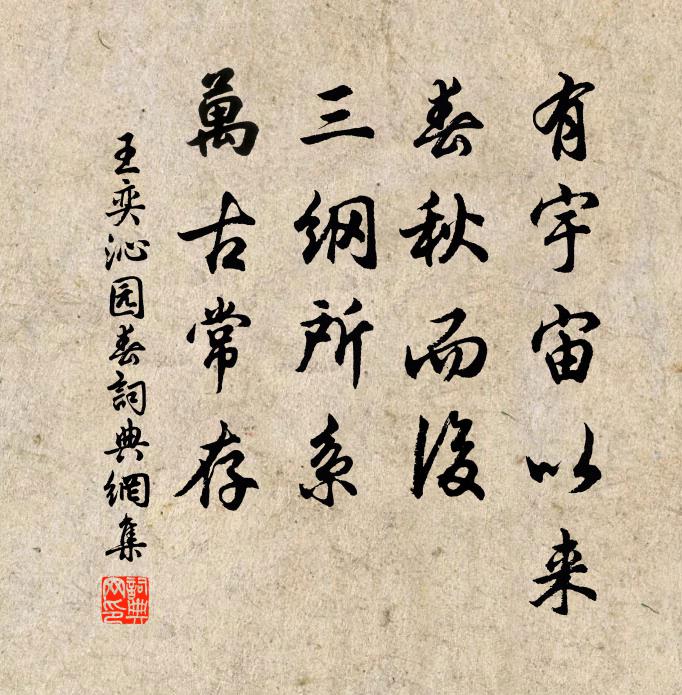 有宇宙以来
春秋而後
三纲所系
萬古常存
王奕沁园春詞典網集
詞典网印